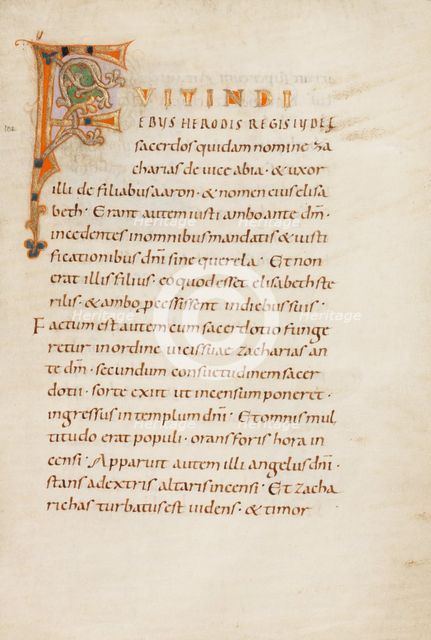 F
VIT IN DI
EBUS HERODIS REGIS IUDEE
sacerdos quidam nomine za
charias de vice abia · & uxor
illi de filiabus aaron · & nomen eius elisa
beth · Erant autem iusti ambo ante dm̅ ·
incedentes in omnibus mandatis & iusti
ficationibus dn̅i sine querela · Et non
erat illis filius · eo quod esset elisabeth ste
rilis · & ambo p̅cessissent in diebus suis ·
Factum est autem cum sacerdotio funge
retur in ordine vicis suae zacharias an
te dm̅ · secundum consuetudinem sacer
dotii · sorte exiit ut incensum poneret ·
ingressus in templum dn̅i · Et omnis mul
titudo erat populi · orans foris hora in
censi · Apparuit autem illi angelus dn̅i ·
stans a dextris altaris incensi · Et zacha
rias turbatus est videns · & timor
Heritage
Heritage
Heritage
Heritage
Heritage
Heritage